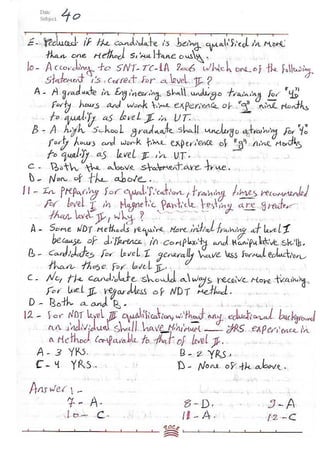 Date:
Subject: 40
E- reduced if the candidate is being qualified in more
than one method simultaneously.
10- According to SNT-TC-1A 2006 which one of the following
statement is correct for a level II?
A- A graduate in Engineering shall undergo training for "40"
forty hours and work time experience of "9" nine months
to qualify as level II in UT.
B- A high school graduate shall undergo a training for "40
forty hours and work time experience of "9" nine months
to qualify as level II in UT.
C- Both the above statement are true.
D- None of the above.
11- In preparing for qualification, training times recommended
for level I in Magnetic Particle testing are greater
than level II, why?
A- Some NDT methods require more initial training at level I
because of difference in complexity and manipulative skills.
B- Candidates for level I generally have less formal education
than those for level II.
C- No, the candidate should always receive more training
for level II regardless of NDT method.
D- Both a and B.
12- for NDT level III qualification, without any educational background
an individual shall have minimum ___ YRS. experience in
a method comparable to that of level II.
A- 3 YRS.
B- 2 YRS.
C- 4 YRS.
D- None of the above.
Answer:-
7- A.
8- D.
9- A
10- C.
11- A
12- C